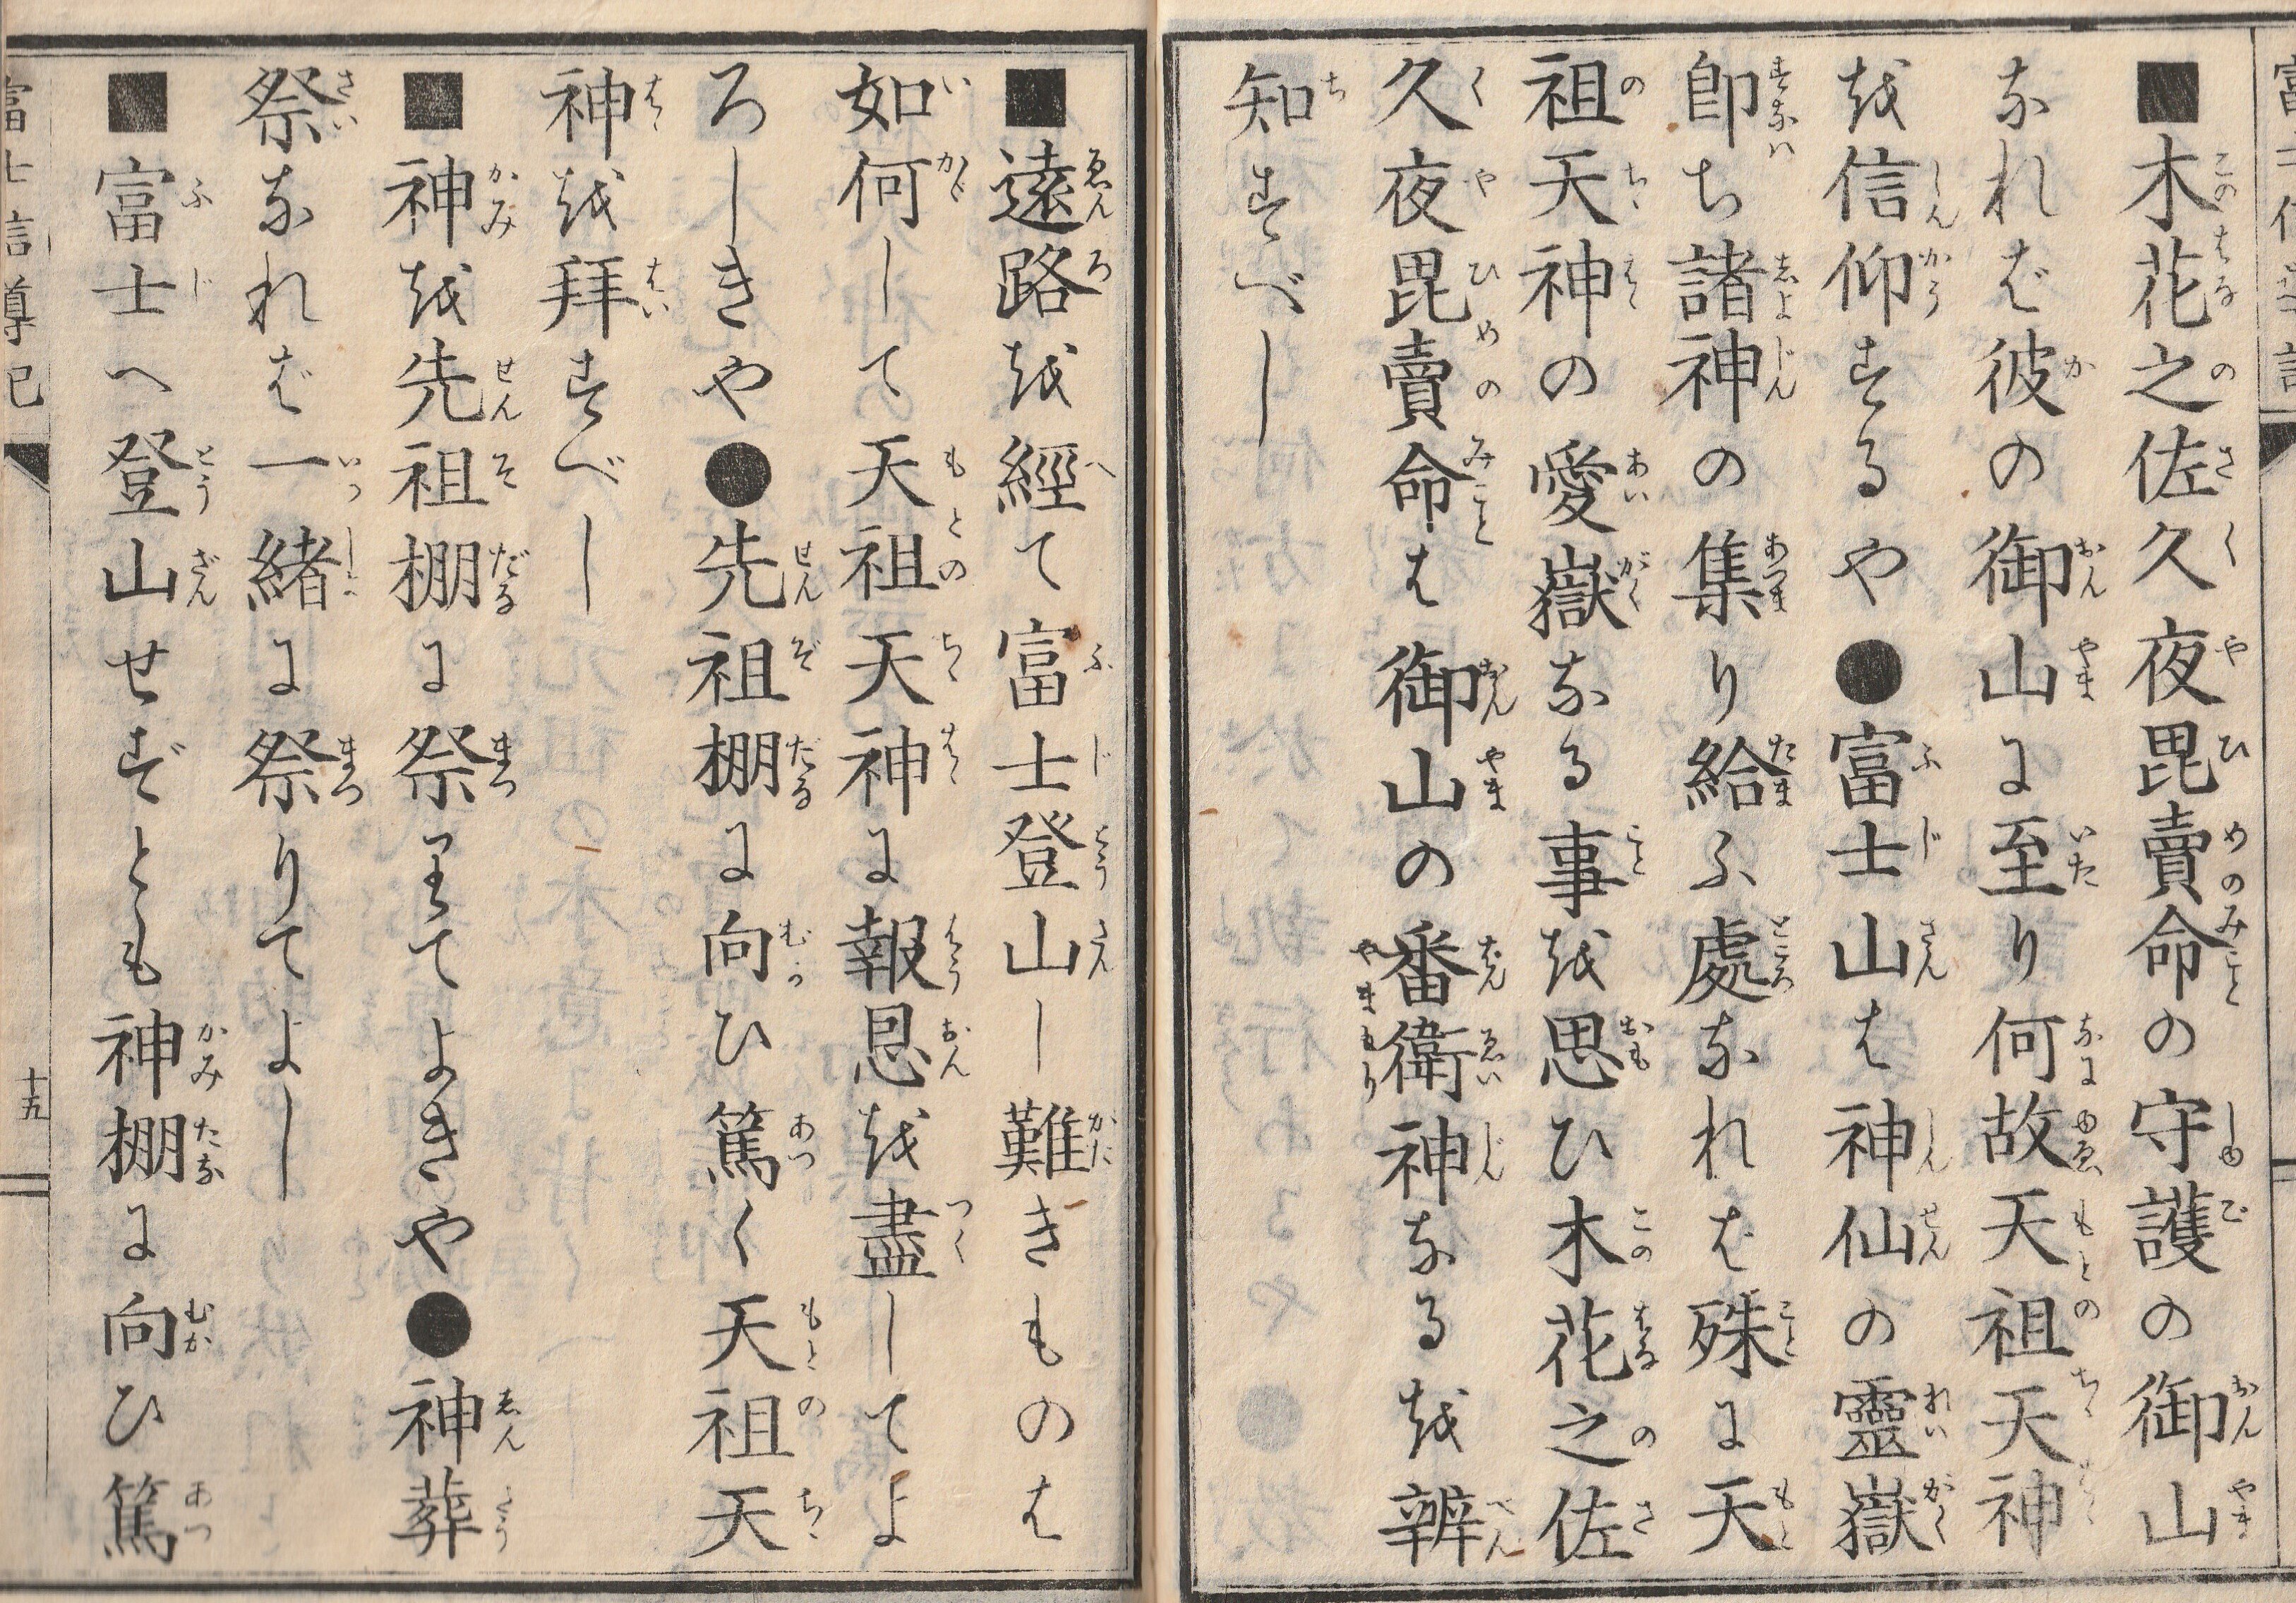 ■木花之佐久夜毘賣命の守護の御山
なれば彼の御山に至り何故天祖天神
を信仰するや●富士山は神仙の靈嶽
即ち諸神の集り給ふ處なれば殊に天
祖天神の愛嶽なる事を思ひ木花之佐
久夜毘賣命は御山の番衛神なるを辨
知すべし
■遠路を經て富士登山し難きものは
如何して天祖天神に報恩を盡してよ
ろしきや●先祖棚に向ひ篤く天祖天
神を拜すべし
■神を先祖棚に祭りてよきや●神葬
祭なれば一緒に祭りてよし
■富士へ登山せずとも神棚に向ひ篤
富士信導記
十五